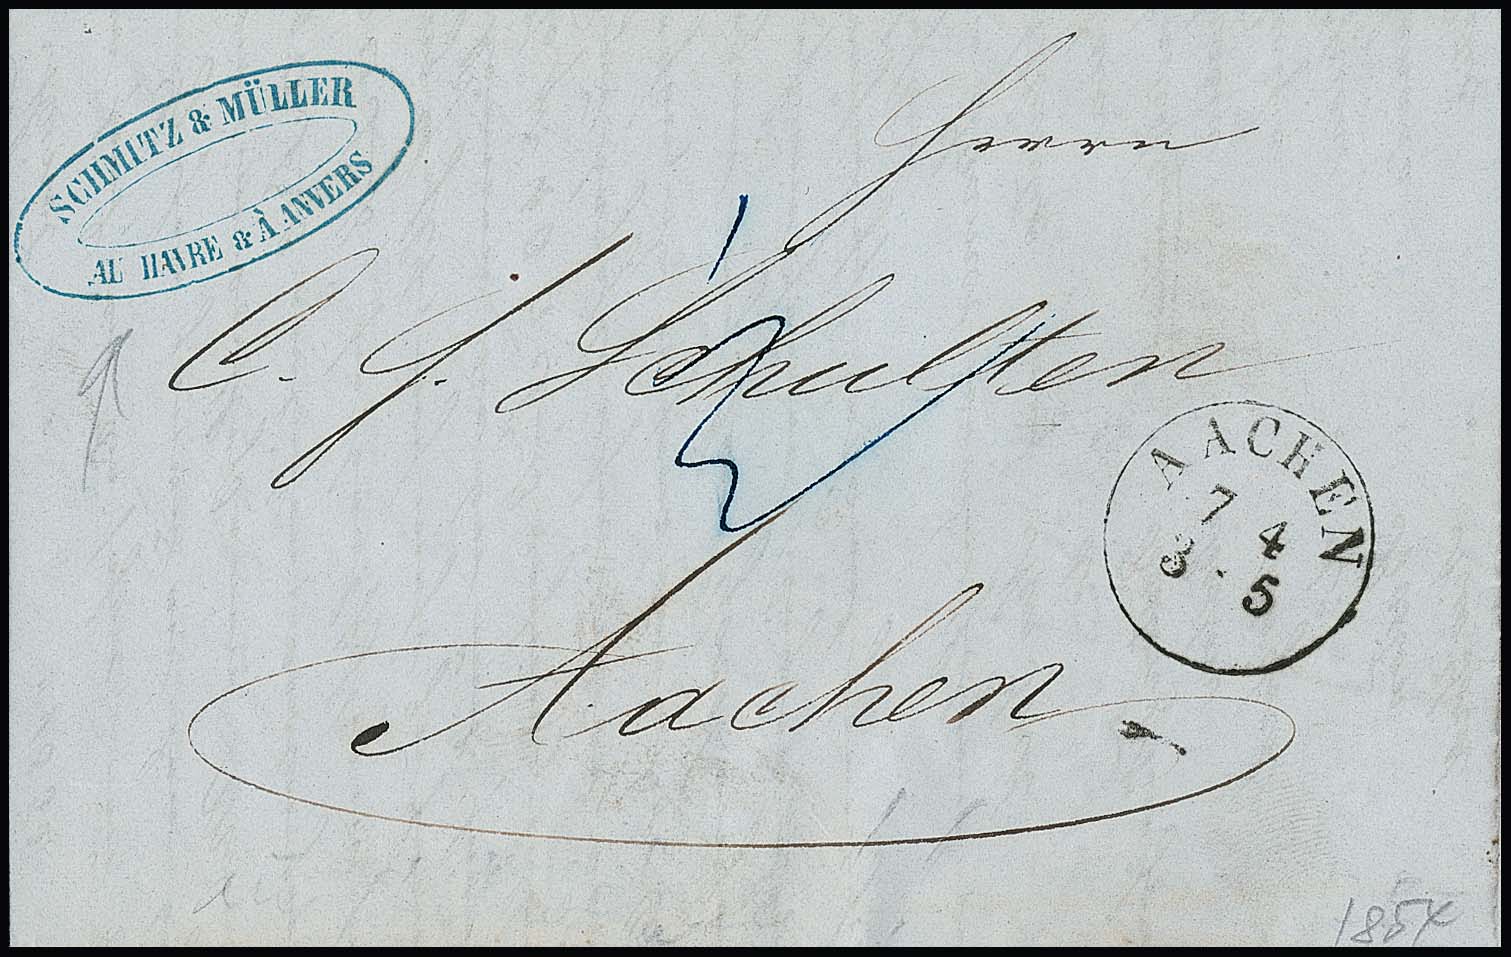 SCHMITZ & MÜLLER
AU HAVRE & À ANVERS
Herrn
C. J. Schulten
Aachen
AACHEN
7 4
3 . 5
1854